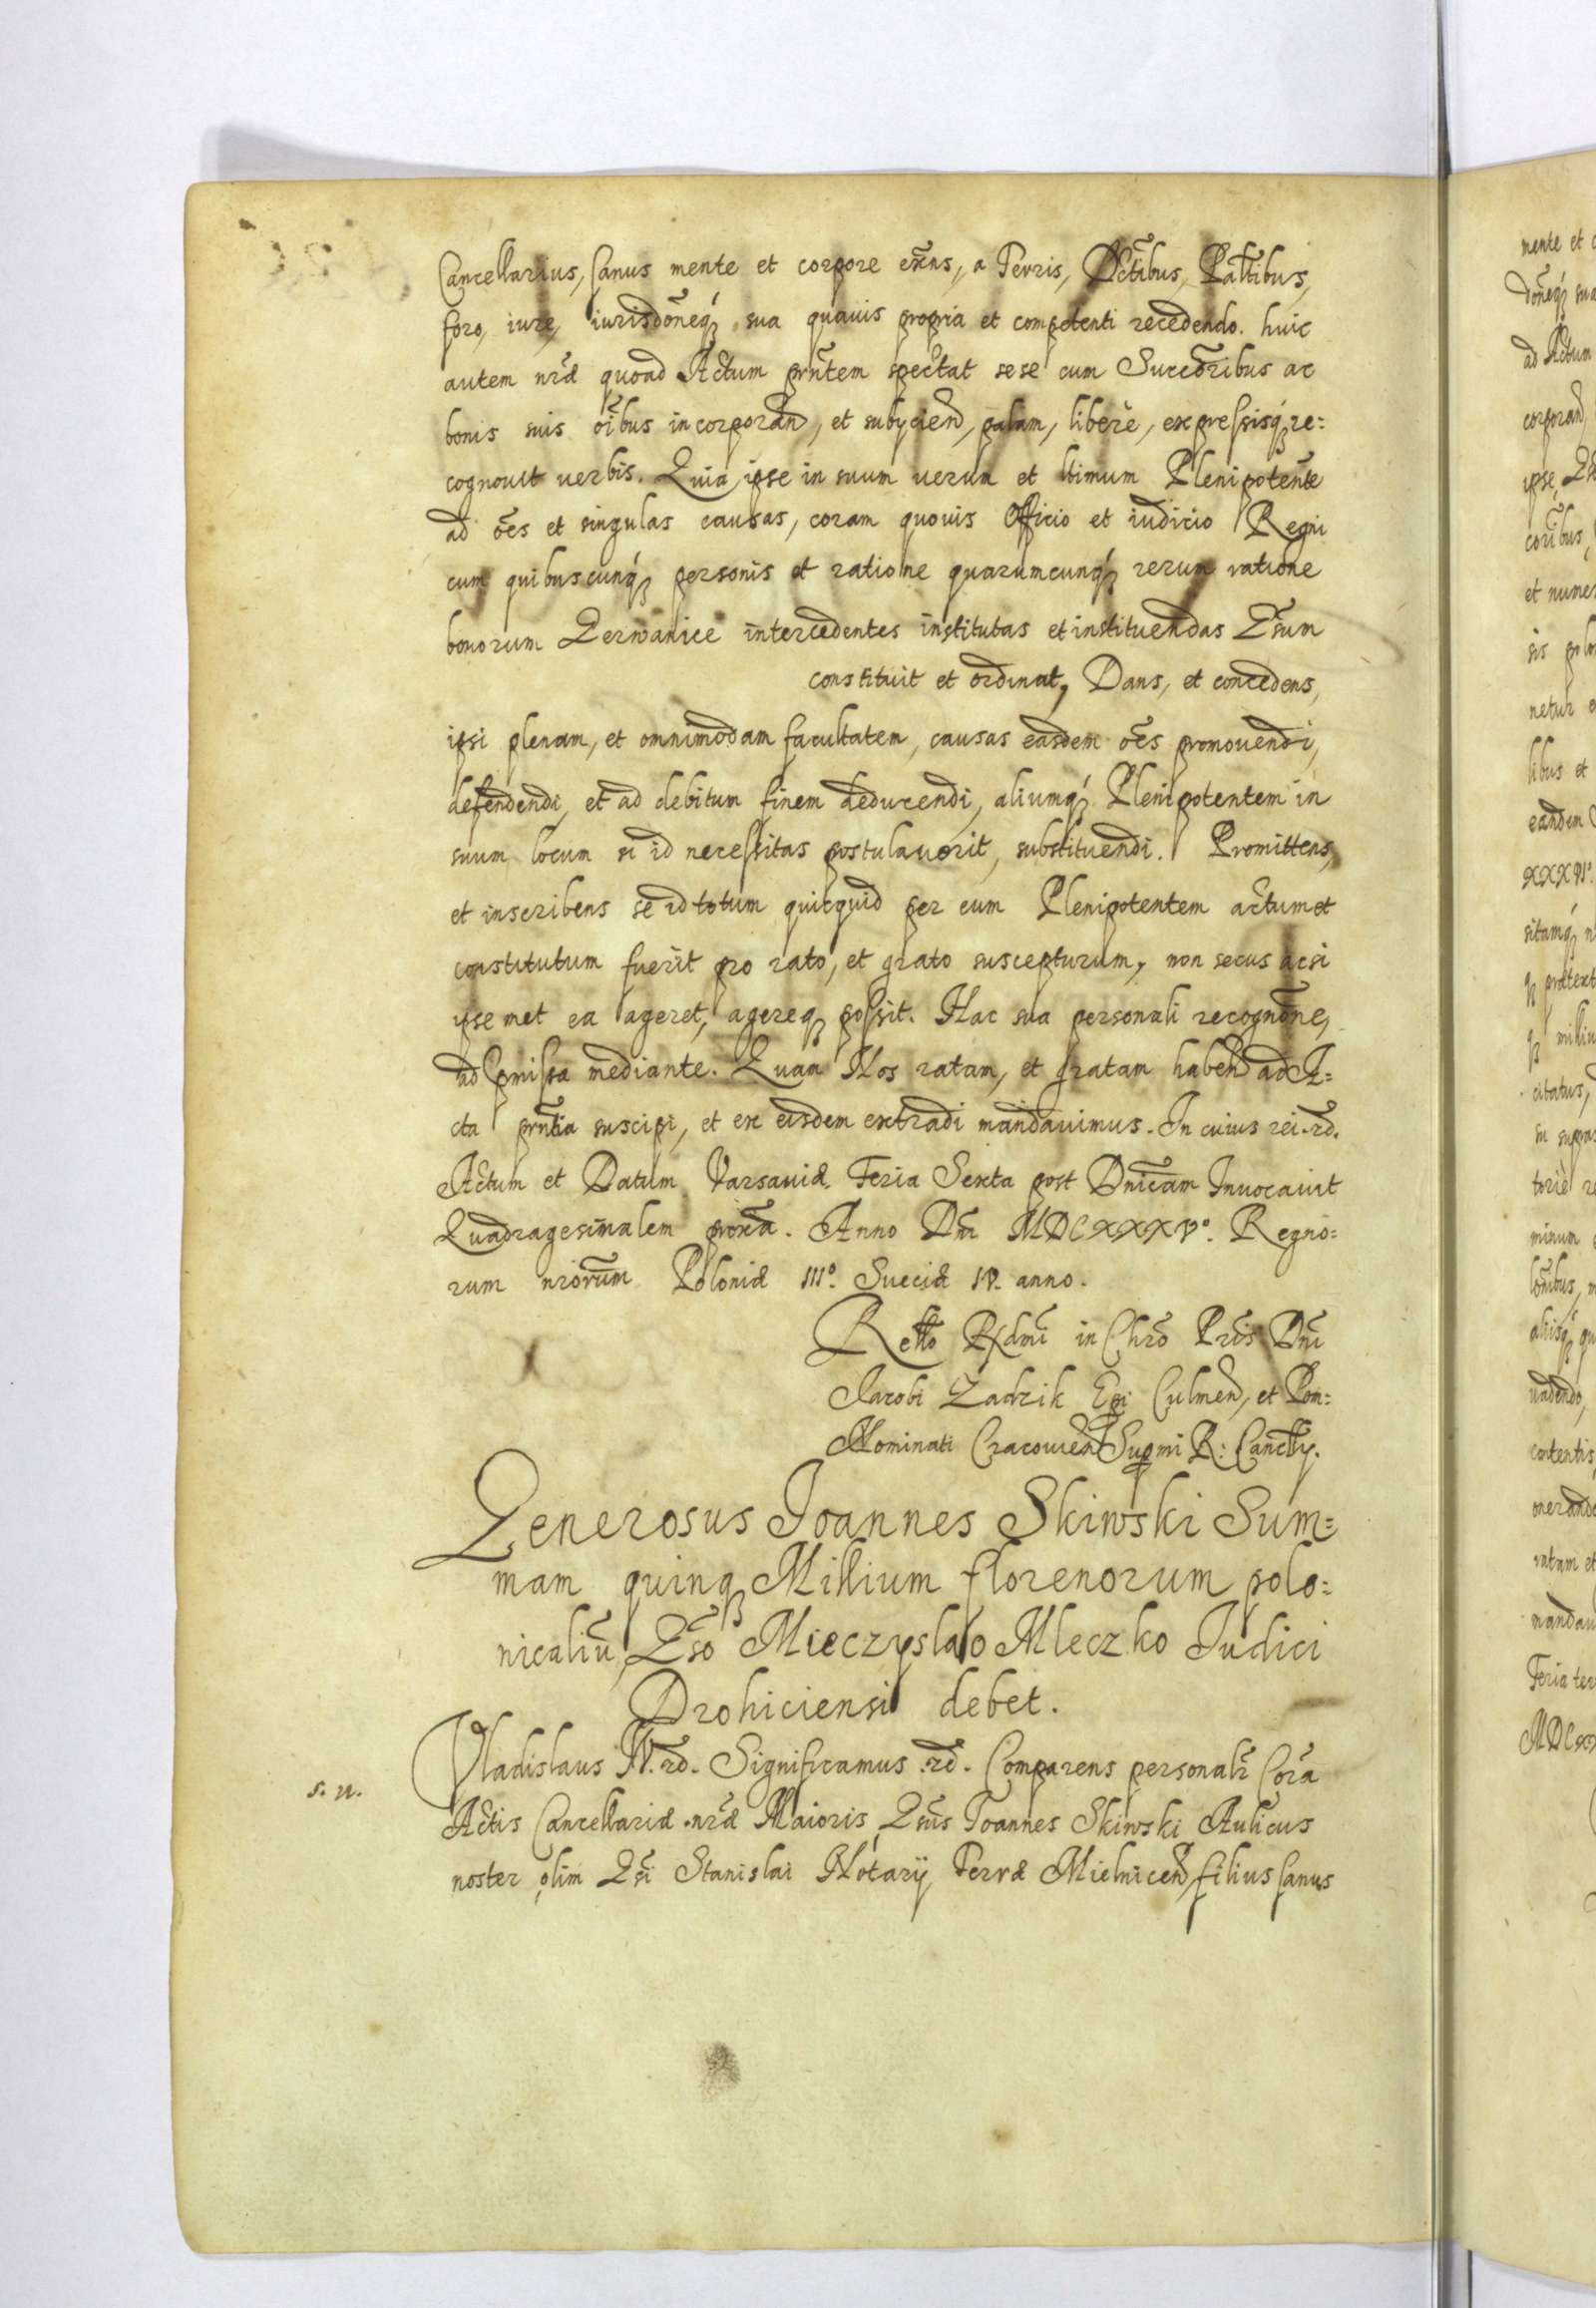 Cancellarius, sanus mente et corpore exñs, a Terris, Dctibus, Pałłtibus,
foro, iure, iurisdõneq́ꝫ sua quavis propria et competenti recedendo. huic
autem nræ̃ quoad Actum prñtem spectat sese cum Succõribus ac
bonis suis oĩbus incorporañ, et subÿcien̄, palam, liberè, expressisq́ꝫ re=
cognouit verbis. Quia ipse in suum verum et ltimum Plenipotentẽ
ad oẽs et singulas causas, coram quouis Officio et iudicio Regni
cum quibuscunq́ꝫ personis et ratione quarumcunq́ꝫ rerum ratione
bonorum Gerwanice intercedentes institutas et instituendas Gs̃um
constituit et ordinat, Dans, et concedens,
ipsi plenam, et omnimodam facultatem, causas easdem oẽs promouendi,
defendendi, et ad debitum finem deducendi, aliumq́ꝫ Plenipotentem in
suum locum si id necessitas postulauerit, substituendi. Promittens,
et inscribens se id totum quicquid per eum Plenipotentem actum et
constitutum fuerit pro rato, et grato suscepturum, non secus acsi
ipsemet ea ageret, agereqꝫ possit. Hac sua personali recognõne,
ad p̃missa mediante. Quam Nos ratam, et gratam haben̄ ad A=
cta prñtia suscipi, et ex eisdem extradi mandauimus. In cuius rei rd.
Actum et Datum Varsauiæ Feria Sexta post Dñicam Inuocauit
Quadragesimalem proxã. Anno Dñi MDCXXXVº. Regno=
rum nrõrum Poloniæ IIIº. Sueciæ IV. anno.
Rełło Rx̃dmi in Chrõ Pris̃ Dñi
Jacobi Zadzik Epĩ Culmen̄, et Pom:
Nominati Cracouien̄ Supmi R: Cancłłÿ.
Generosus Joannes Skiwski Sum=
mam quinqꝫ Millium florenorum polo=
nicaliũ Gs̃o Mieczyslao Mleczko Iudici
Drohiciensi debet.
s. n.
Vladislaus IV. rd. Significamus rd. Comparens personalr̃ Corã
Actis Cancellariæ nræ̃ Maioris Gsũs Joannes Skiwski Aulicus
noster olim Gsĩ Stanislai Notarÿ Terræ Mielnicen̄ filius sanus